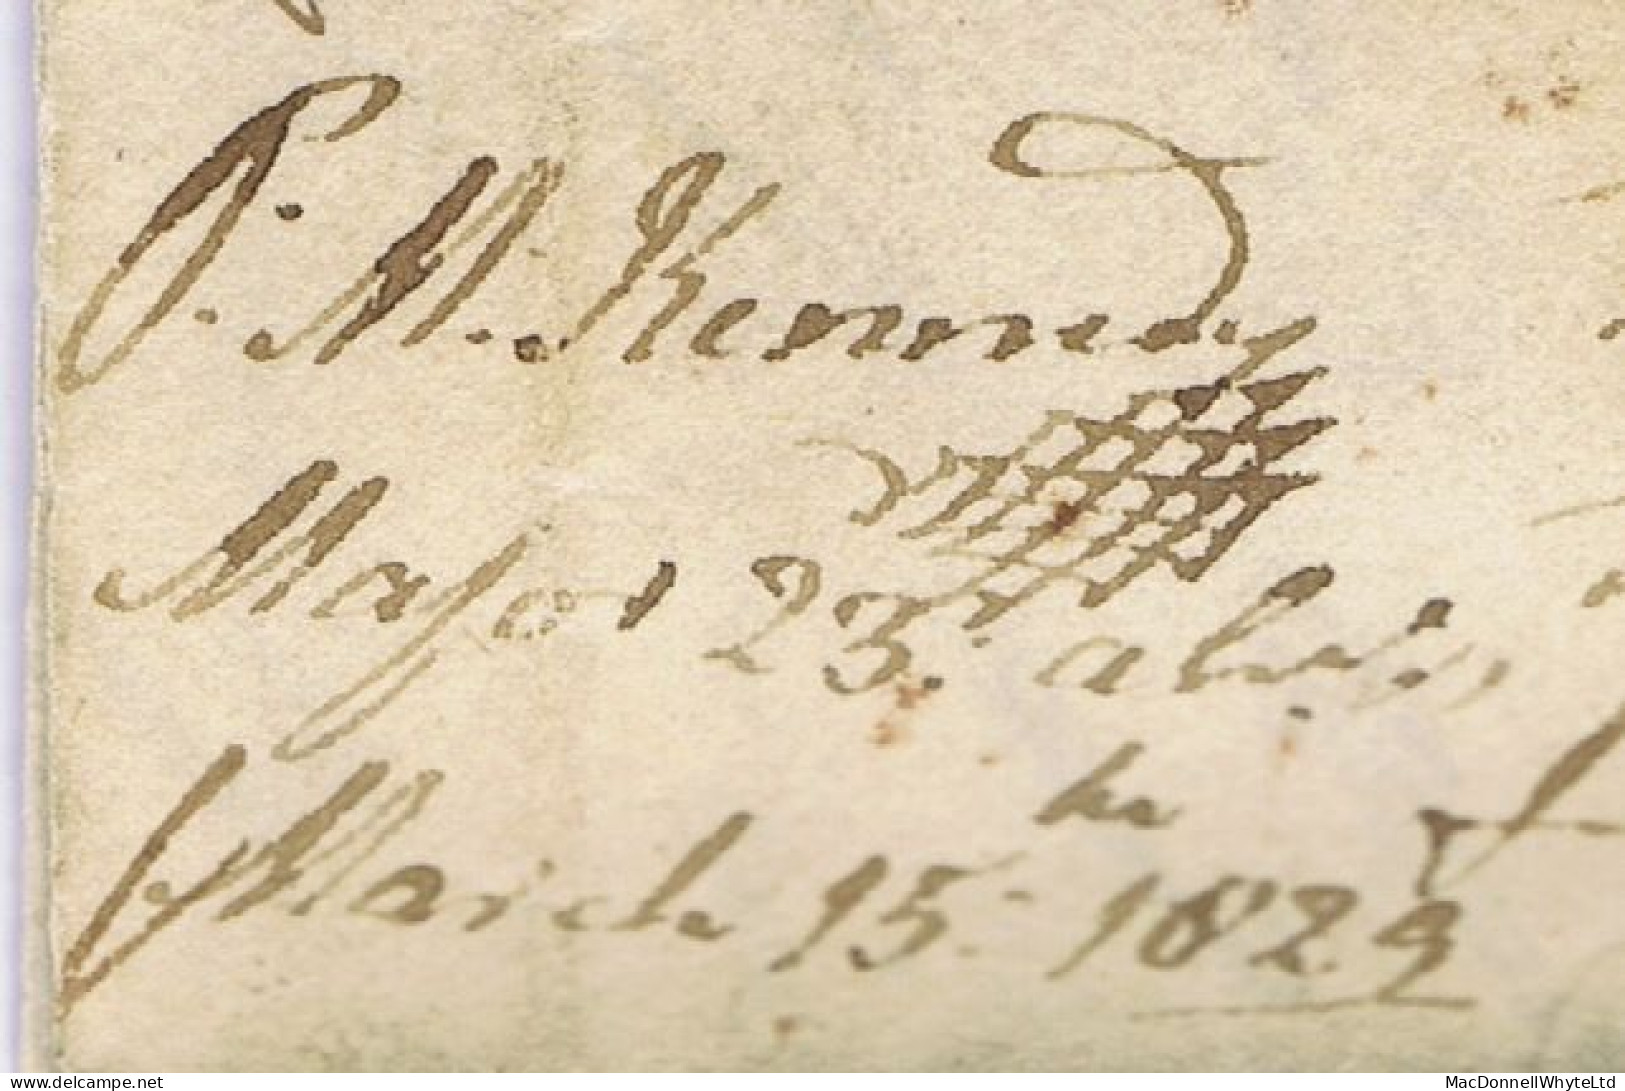 P. M. Kennedy
Major 23.
March 15th 1829
www.delcampe.net
MacDonnellWhyteLtd